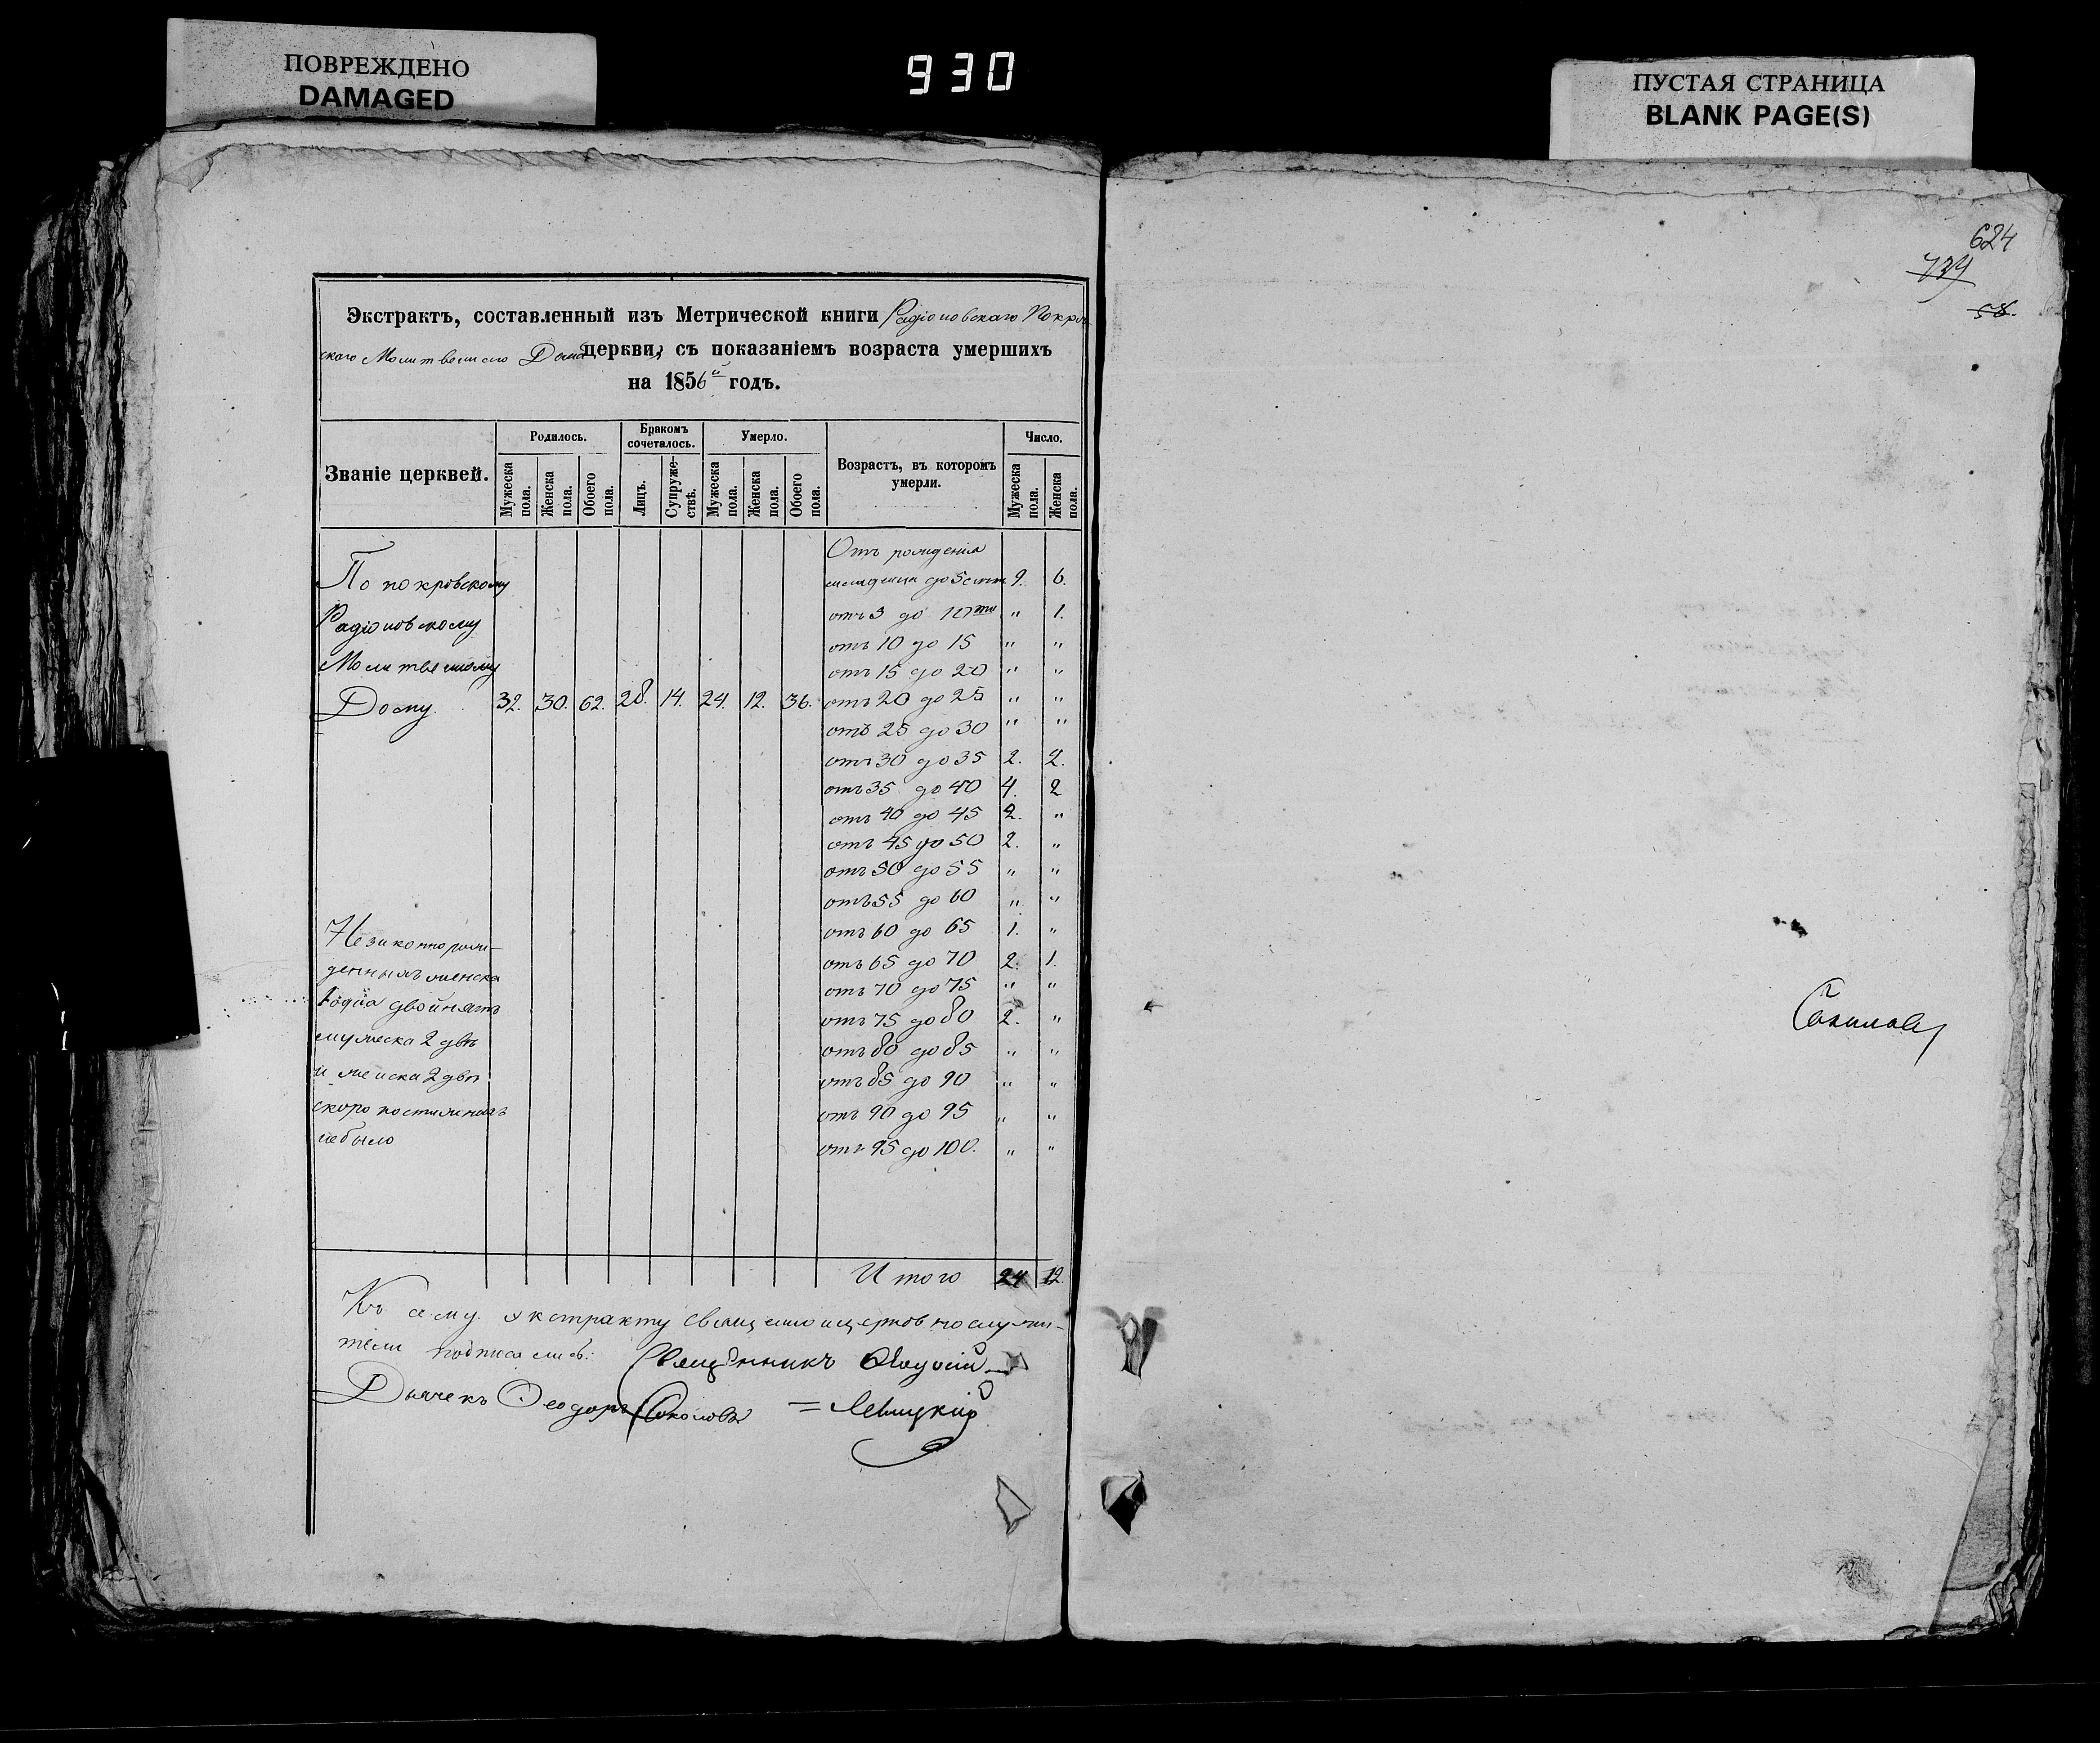 ПОВРЕЖДЕНО
DAMAGED
930
ПУСТАЯ СТРАНИЦА
BLANK PAGE(S)
624
739
58.
Экстрактъ, составленный изъ Метрической книги Радіоновскаго Покров
скаго Молитвеннаго Дома церкви, съ показаніемъ возраста умершихъ
на 1856й годъ.
Званіе церквей.
Родилось.
Бракомъ сочеталось.
Умерло.
Возрастъ, въ которомъ умерли.
Число.
Мужеска пола.
Женска пола.
Обоего пола.
Лицъ.
Супружествъ.
Мужеска пола.
Женска пола.
Обоего пола.
Мужеска пола.
Женска пола.
Отъ рожденія
По покровскому до 5 9. 6.
Радіоновскому до 10 " 1.
Молитвенному отъ 10 до 15 " "
отъ 15 до 20 " "
Дому. 32. 30. 62. 28. 14. 24. 12. 36. отъ 20 до 25 " "
отъ 25 до 30 " "
отъ 30 до 35 2. 2.
отъ 35 до 40 4. 2
отъ 40 до 45 2. "
отъ 45 до 50 2. "
отъ 50 до 55 " "
отъ 55 до 60 " "
Незаконнорож- отъ 60 до 65 1. "
денныхъ женска отъ 65 до 70 2. 1.
отъ 70 до 75 " "
1 одна двойнятъ отъ 75 до 80 2. "
мужеска 2 двѣ отъ 80 до 85 " "
и женска 2 двѣ отъ 85 до 90 " "
скоропостижныхъ отъ 90 до 95 " "
небыло отъ 95 до 100. " "
Итого 24 12.
Къ сему экстракту священноицерковнослужи-
тели подписались: Священникъ
Дьячекъ Ѳеодоръ Соколовъ = Левицкій